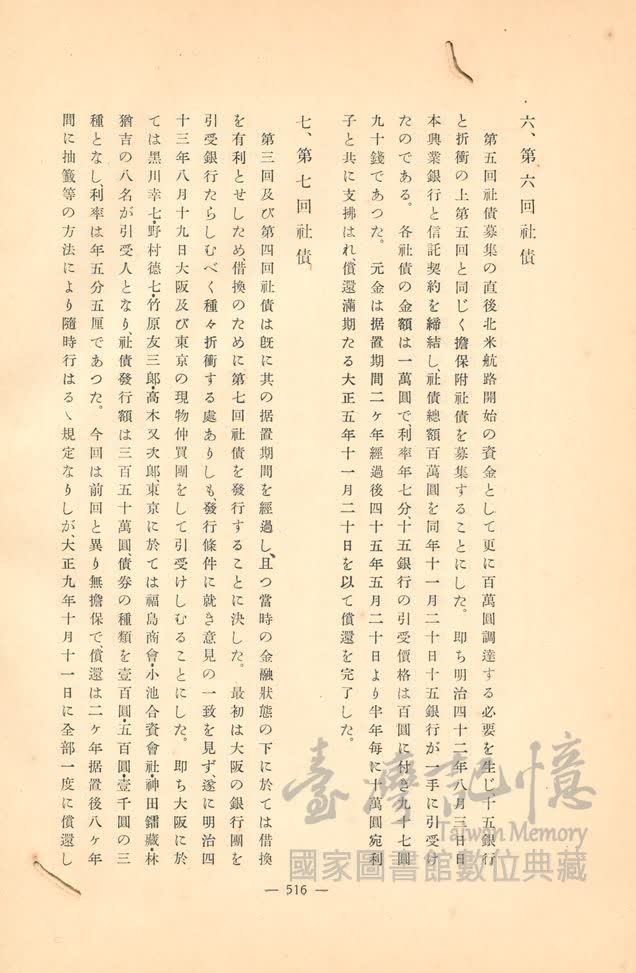 六、第六回社債
第五回社債募集の直後北米航路開始の資金として更に百萬圓調達する必要を生じ十五銀行
と折衝の上第五回と同じく擔保附社債を募集することにした。即ち明治四十二年八月三日日
本興業銀行と信託契約を締結し、社債總額百萬圓を同年十一月二十日十五銀行が一手に引受け
たのである。各社債の金額は一萬圓で、利率年七分、十五銀行の引受價格は百圓に付き九十七圓
九十錢であつた。元金は据置期間二ケ年經過後四十五年五月二十日より半年每に十萬圓宛利
子と共に支拂はれ、償還滿期たる大正五年十一月二十日を以て償還を完了した。
七、第七回社債
第三回及び第四回社債は旣に其の据置期間を經過し、且つ當時の金融狀態の下に於ては借換
を有利とせしため、借換のために第七回社債を發行することに決した。最初は大阪の銀行團を
引受銀行たらしむべく種々折衝する處ありしも、發行條件に就き意見の一致を見ず、遂に明治四
十三年八月十九日大阪及び東京の現物仲買團をして引受けしむることにした。即ち大阪に於
ては黑川幸七・野村德七・竹原友三郞・高木又次郞、東京に於ては福島商會・小池合資會社・神田鐳藏・林
猶吉の八名が引受人となり、社債發行額は三百五十萬圓、債券の種類を壹百圓・五百圓・壹千圓の三
種となし、利率は年五分五厘であつた。今回は前回と異り無擔保で、償還は二ケ年据置後八ケ年
間に抽籤等の方法により隨時行はるゝ規定なりしが、大正九年十月十一日に全部一度に償還し
— 516 —
臺灣記憶
Taiwan Memory
國家圖書館數位典藏